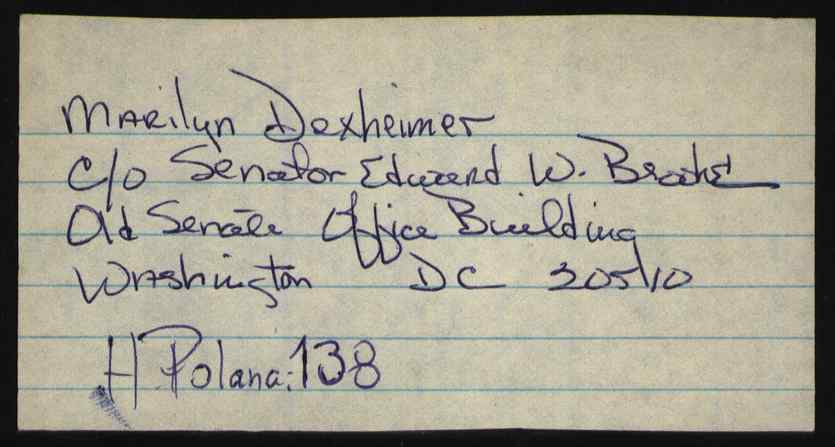 Marilyn Dexheimer
c/o Senator Edward W. Brooke
Old Senate Office Building
Washington DC 20510
H Polana: 138